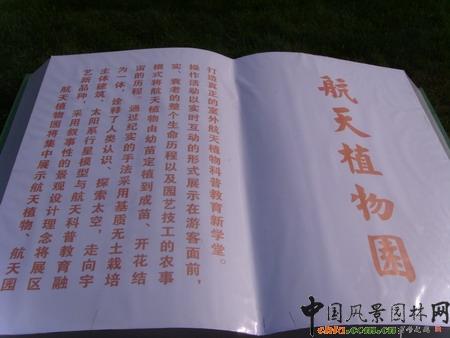 航天植物园
航天植物园将集中展示航天植物、航天园
艺新品种，采用叙事性的景观设计理念将展区
主体建筑、太阳系行星模型与航天科普教育融
为一体，诠释了人类认识、探索太空、走向宇
宙的历程。通过纪实的手法采用基质无土栽培
模式将航天植物由幼苗定植到成苗、开花结
实、衰老的整个生命历程以及园艺技工的农事
操作活动以实时互动的形式展示在游客面前，
打造真正的室外航天植物科普教育新学堂。
中国风景园林网
chla.com.cn